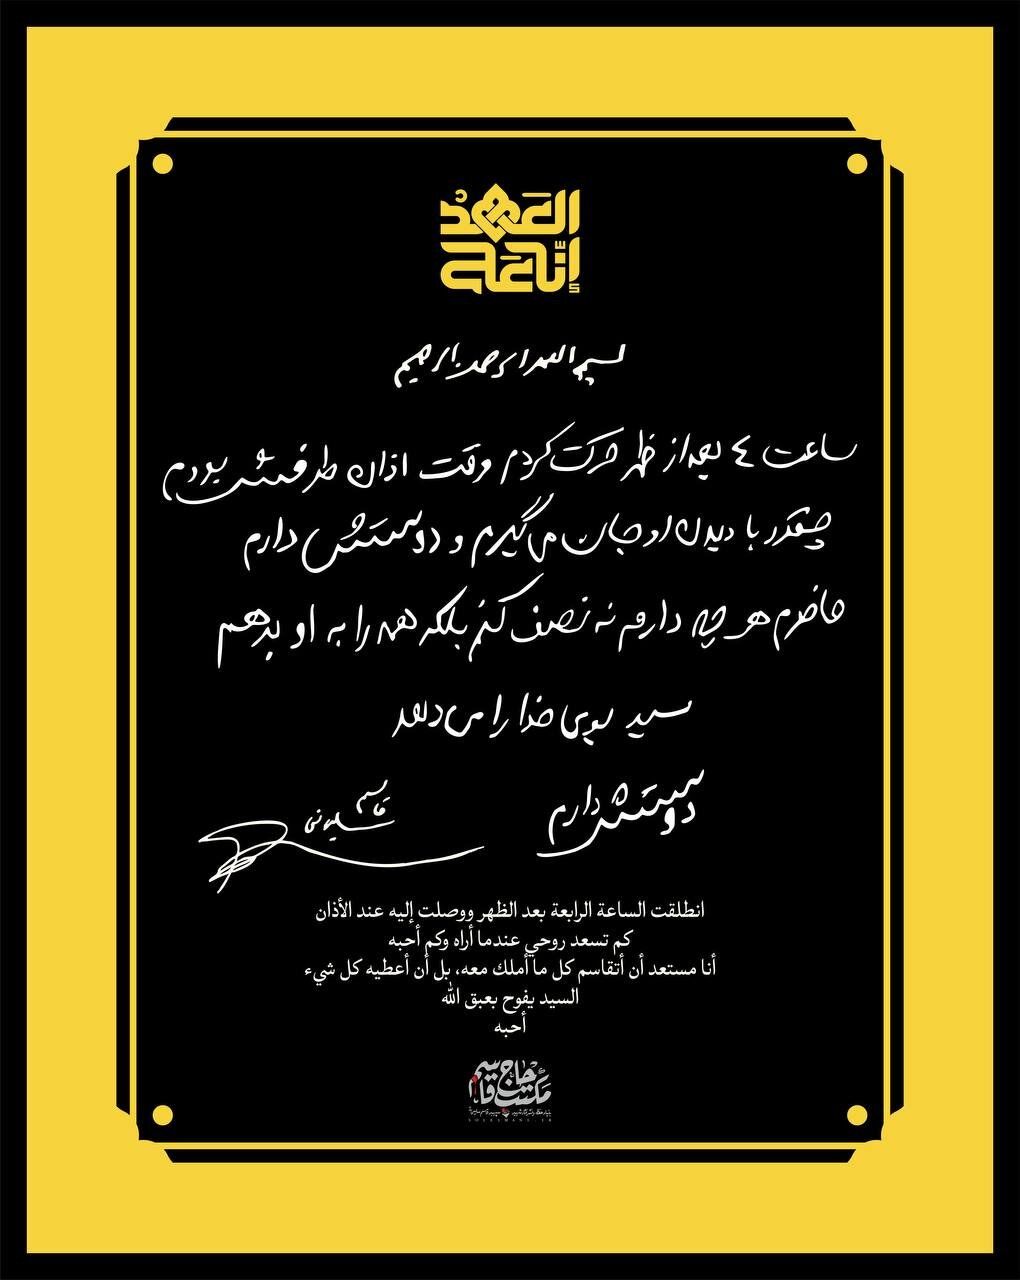 إنّا على
العهد
بسم الله الرحمن الرحیم
ساعت ٤ بعد از ظهر حرکت کردم وقت اذان طرفش بودم
چقدر با دیدن او جان می‌گیرم و دوستش دارم
حاضرم هر چه دارم نه نصف کنم بلکه همه را به او بدهم
سید بوی خدا را می‌دهد
دوستش دارم
قاسم سلیمانی
انطلقت الساعة الرابعة بعد الظهر ووصلت إليه عند الأذان
كم تسعد روحي عندما أراه وكم أحبه
أنا مستعد أن أتقاسم كل ما أملك معه، بل أن أعطيه كل شيء
السيد يفوح بعبق الله
أحبه
مکتب حاج قاسم
SOLEIMANI.IR